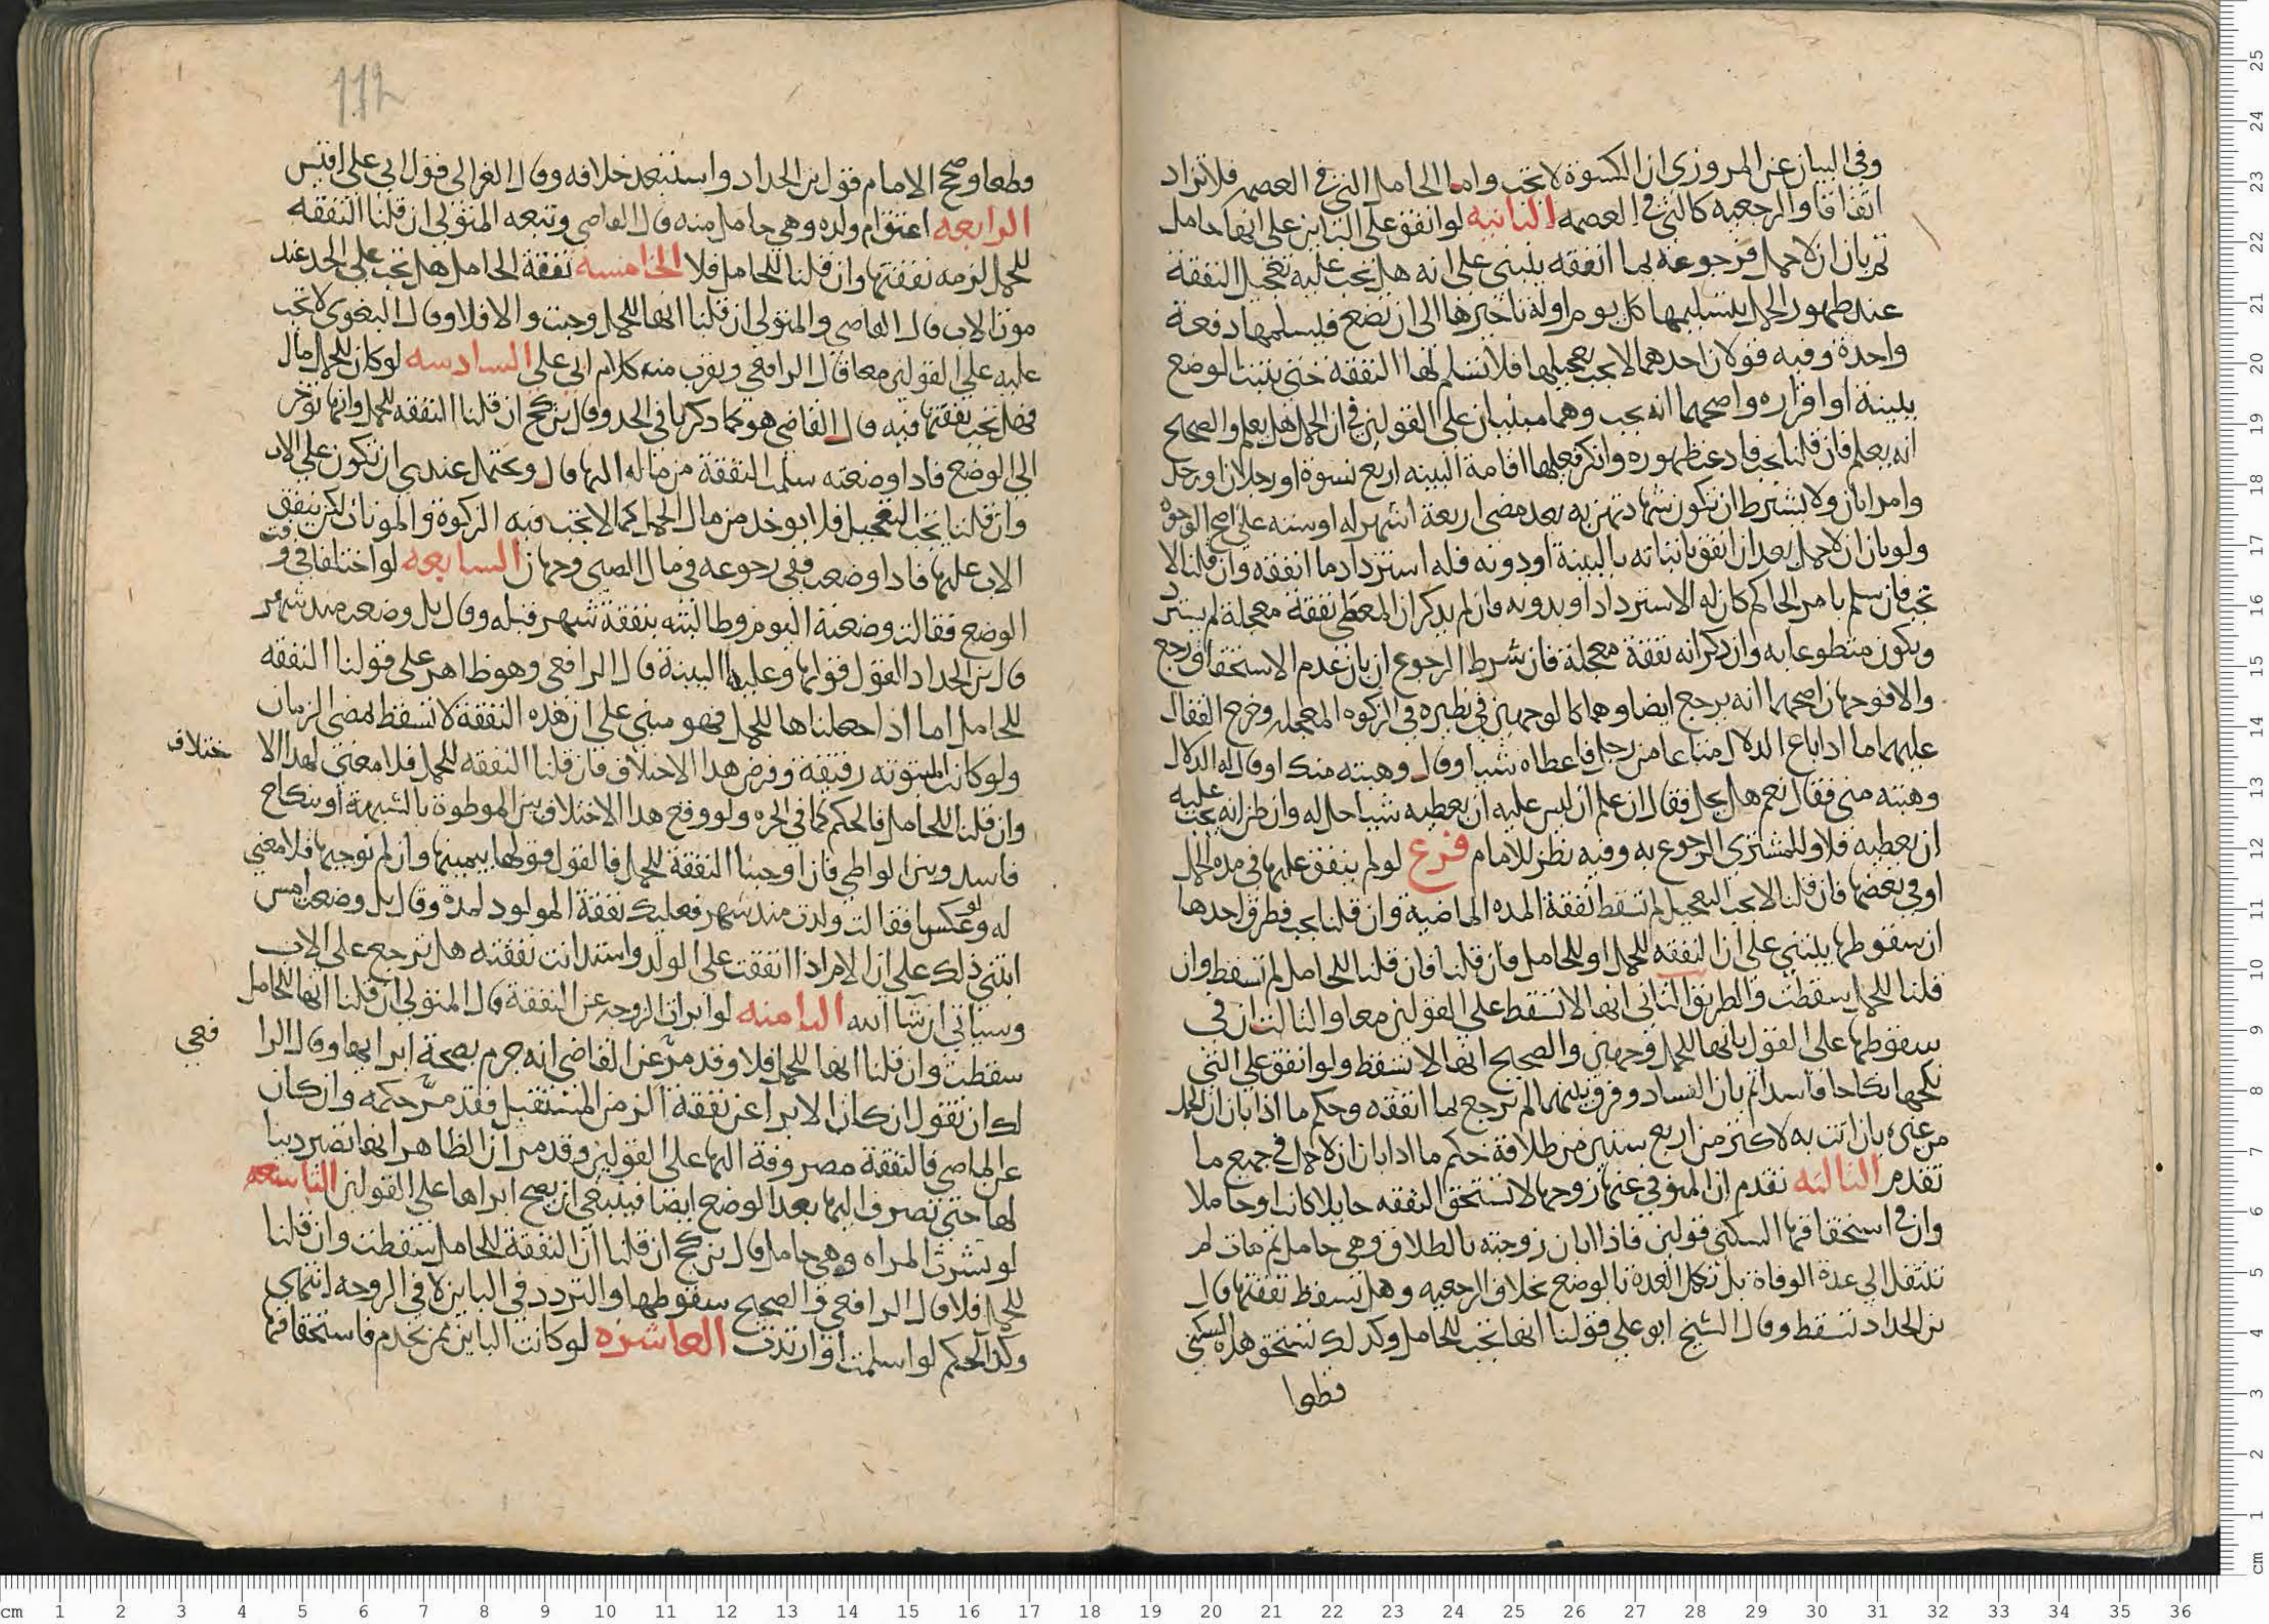 وفي البيان عن المروزي ان الكسوة لا تجب واما الحامل التي في العصمه فلا تزاد
اتفاقا والرجعيه كالتي في العصمه الثانيه لو انفق على الباين على انها حامل
ثم بان ان لا حمل فرجوعه بما انفقه ينبني على انه هل يجب عليه تعجيل النفقة
عند ظهور الحمل بتسليمها كل يوم او له تاخيرها الى ان تضع فيسلمها دفعة
واحدة وفيه قولان احدهما لا يجب تعجيلها فلا تسلم لها النفقه حتى يثبت الوضع
ببينة او اقراره واصحهما انه يجب وهما مبنيان على القولين في ان الحمل هل يعلم والصحيح
انه يعلم فان قلنا يجب فادعت ظهوره وانكر فعليها اقامة البينه اربع نسوة او رجلان او رجل
وامراتان ولا يشترط ان تكون شهادتهن به بعد مضي اربعة اشهر له او سته على اصح الوجوه
ولو بان ان لا حمل بعد ان انفق باثباته بالبينة او دونه فله استرداد ما انفقه وان قلنا لا
تجب فان سلم بامر الحاكم كان له الاسترداد او بدونه فان لم يذكر ان المعطى نفقة معجلة لم يسترد
ويكون متطوعا به وان ذكر انه نفقة معجلة فان شرط الرجوع ان بان عدم الاستحقاق رجع
والا فوجهان اصحهما انه يرجع ايضا وهما كالوجهين في نظيره في الزكوه المعجله وخرج القفال
عليهما ما اذا باع الدلال متاعا من رجل فاعطاه شيا وقال وهبته منك او قال له الدلال
وهبته مني فقال نعم هل يحل فقال ان علم ان ليس عليه ان يعطيه شيا حل له وان ظن انه يجب عليه
ان يعطيه فلا وللمشتري الرجوع به وفيه نظر للامام فرع لو لم ينفق عليها في مده الحمل
او في بعضها فان قلنا لا يجب التعجيل لم تسقط نفقة المده الماضية وان قلنا يجب فطرق احدها
ان سقوطها ينبني على ان النفقه للحمل او للحامل فان قلنا فان قلنا للحامل لم تسقط وان
قلنا للحمل سقطت والطريق الثاني انها لا تسقط على القولين معا والثالث ان في
سقوطها على القول بانها للحمل وجهين والصحيح انها لا تسقط ولو انفق على التي
نكحها نكاحا فاسدا ثم بان الفساد وفرق بينهما لم يرجع بما انفقه وحكم ما اذا بان ان الحمل
من غيره بان اتت به لاكثر من اربع سنين من طلاقه حكم ما اذا بان ان لا حمل في جميع ما
تقدم الثالثه تقدم ان المتوفي عنها زوجها لا تستحق النفقه حايلا كانت او حاملا
وان في استحقاقها السكنى قولين فاذا ابان زوجته بالطلاق وهي حامل ثم مات لم
تنتقل الى عدة الوفاة بل تكمل العدة بالوضع بخلاف الرجعيه وهل تسقط نفقتها قال
بن الحداد تسقط وقال الشيخ ابو علي قولنا انها تجب للحامل وكذلك تستحق هذه السكنى
قطعا
قطعا وصحح الامام قول بن الحداد واستبعد خلافه وقال الغزالي قول ابي علي اقيس
الرابعه اعتق ام ولده وهي حامل منه قال القاضي وتبعه المتولي ان قلنا النفقه
للحمل لزمه نفقتها وان قلنا للحامل فلا الخامسه نفقة الحامل هل تجب على الجد عند
موت الاب قال القاضي والمتولي ان قلنا انها للحمل وجبت والا فلا وقال البغوي لا تجب
عليه على القولين معا قال الرافعي ويقرب منه كلام ابي علي السادسه لو كان للحمل مال
فهل تجب نفقتها فيه قال القاضي هو كما ذكرنا في الجد وقال بن كج ان قلنا النفقه للحمل وانها توخر
الى الوضع فاذا وضعته سلمت النفقة من ماله اليها قال ويحتمل عندي ان تكون على الاب
وان قلنا يجب التعجيل فلا يوخذ من مال الحمل كما لا تجب فيه الزكوة والمونات لكن ينفق
الاب عليها فاذا وضعت ففي رجوعه في مال الصبي وجهان السابعه لو اختلفا في وقت
الوضع فقالت وضعته اليوم وطالبته بنفقة شهر قبله وقال بل وضعت منذ شهر
قال بن الحداد القول قولها وعليه البينة قال الرافعي وهو ظاهر على قولنا النفقه
للحامل اما اذا جعلناها للحمل فهو مبني على ان هذه النفقة لا تسقط لمضي الزمان
ولو كانت المبتوته رقيقة وفرض هذا الاختلاف فان قلنا النفقه للحمل فلا معنى لهذا الا
ختلاف
وان قلنا للحامل فالحكم كما في الحره ولو وقع هذا الاختلاف بين الموطوة بالشبهة او بنكاح
فاسد وبين الواطي فان اوجبنا النفقة للحمل فالقول قولها بيمينها وان لم نوجبها فلا معنى
له ولو عكسا فقالت ولدت منذ شهر فعليك نفقة المولود لمدة وقال بل وضعت امس
انبنى ذلك على ان الام اذا انفقت على الولد واستدانت نفقته هل ترجع على الاب
وسياتي ان شا الله الثامنه لو ابرات الزوجه عن النفقة قال المتولي ان قلنا انها للحامل
سقطت وان قلنا انها للحمل فلا وقد مر عن القاضي انه جزم بصحة ابرايها وقال الرا
فعي
لك ان تقول ان كان الابرا عن نفقة الزمن المستقبل فقد مر حكمه وان كان
عن الماضي فالنفقة مصروفة اليها على القولين وقد مر ان الظاهر انها تصير دينا
لها حتى تصرف اليها بعد الوضع ايضا فينبغي ان يصح ابراها على القولين التاسعه
لو نشزت المراه وهي حامل قال بن كج ان قلنا ان النفقة للحامل سقطت وان قلنا
للحمل فلا قال الرافعي والصحيح سقوطها والتردد في الباين لا في الزوجه انتهى
وكذا الحكم لو اسلمت او ارتدت العاشره لو كانت الباين ممن يخدم فاستحقاقها